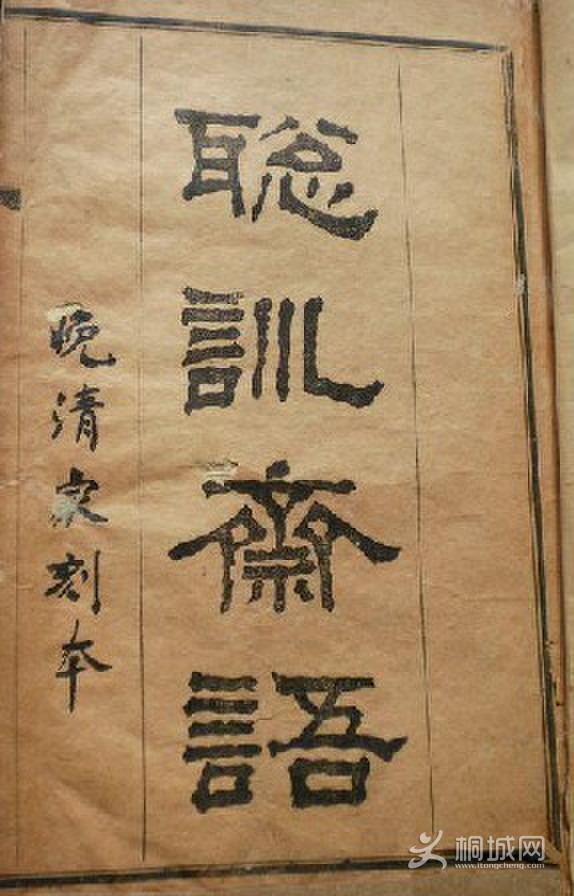 聡訓齋語
晚清家刻本
桐城网
www.itongcheng.com